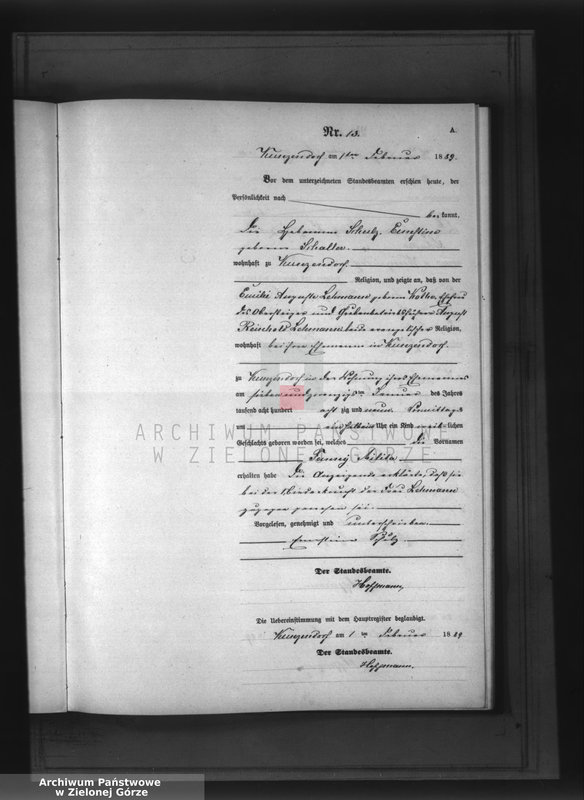 A.
Nr. 13.
Kunzendorf am 1ten Februar 1889.
Vor dem unterzeichneten Standesbeamten erschien heute, der
Persönlichkeit nach
be kannt,
die Hebamme Schulz, Ernestine
geborene Schaller
wohnhaft zu Kunzendorf
Religion, und zeigte an, daß von der
Emilie Auguste Lehmann geborene Ehefrau
des Obersteiger und August
Reinhold Lehmann beide evangelischer Religion,
wohnhaft bei ihrem Ehemann in Kunzendorf.
zu Kunzendorf in der Wohnung ihres Ehemannes
am sieben und zwanzigsten Januar des Jahres
tausend acht hundert acht zig und neun Vormittags
um Uhr ein Kind weib-lichen
Geschlechts geboren worden sei, welches die Vornamen
Fanny
ARCHIWUM PAŃSTWOWE
W ZIELONEJ GÓRZE
erhalten habe Die Anzeigende erklärte, daß sie
bei der Niederkunft der Frau Lehmann
zugegen gewesen sei.
Vorgelesen, genehmigt und unterschrieben.
Ernestine Schulz
Der Standesbeamte.
Hoffmann.
Die Uebereinstimmung mit dem Hauptregister beglaubigt.
Kunzendorf am 1ten Februar 1889
Der Standesbeamte.
Hoffmann.
Archiwum Państwowe
w Zielonej Górze